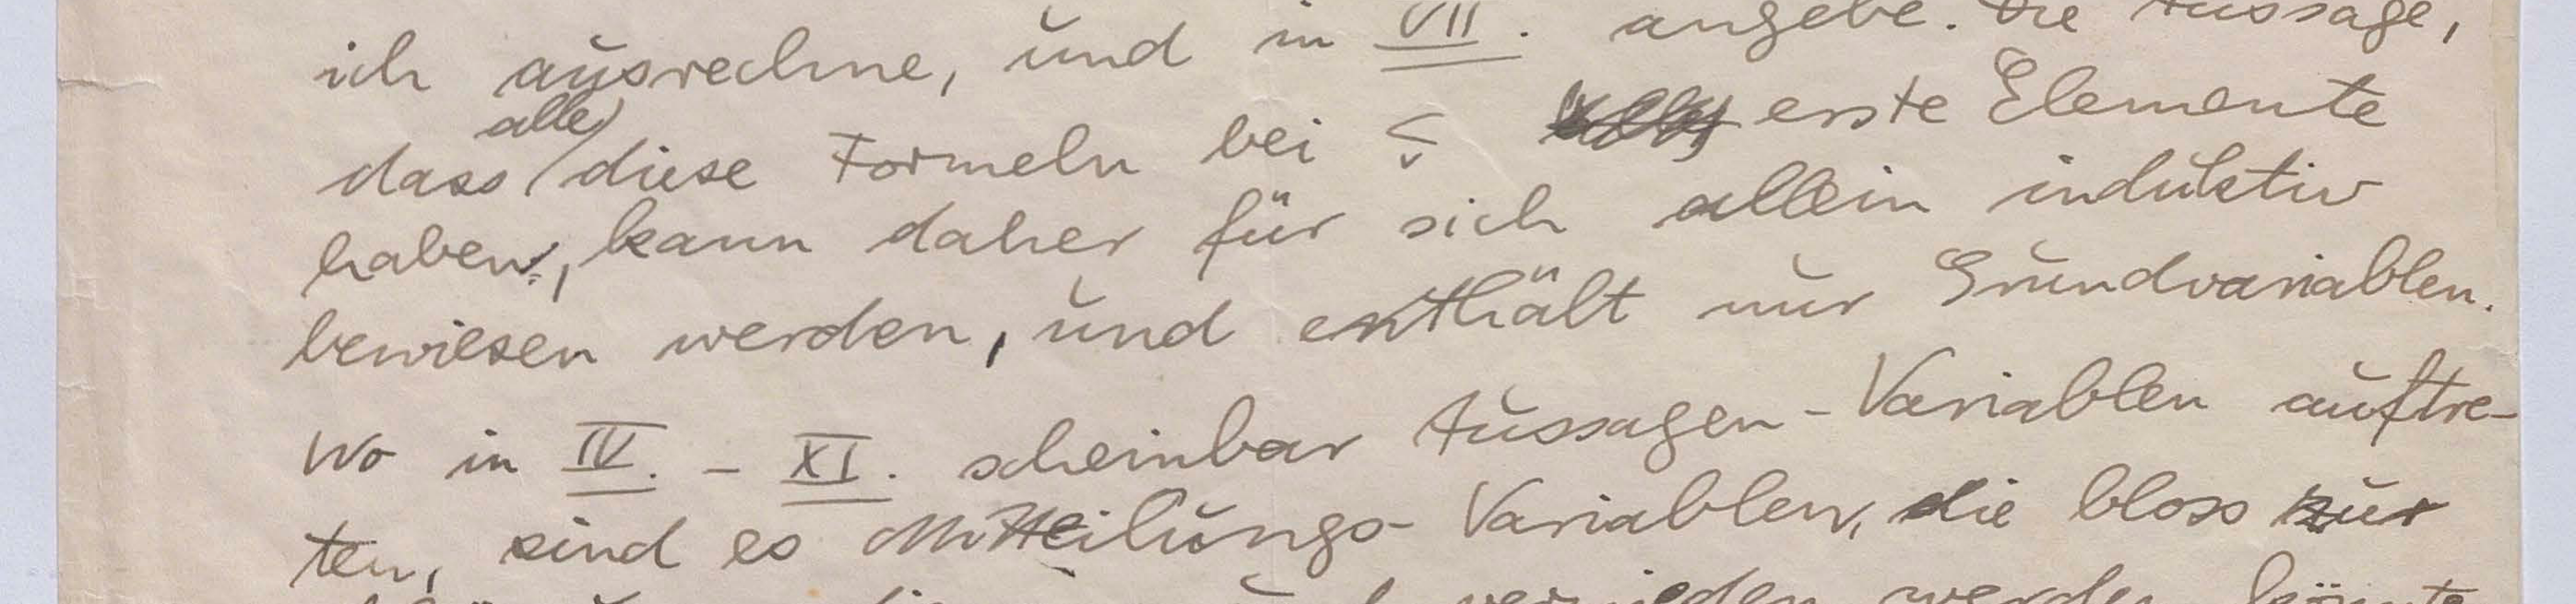 ich ausrechne, und in VII. angebe. Die Aussage,
dass alle diese Formeln bei ς erste Elemente
haben, kann daher für sich allein induktiv
bewiesen werden, und enthält nur Grundvariablen.
Wo in IV. – XI. scheinbar Aussagen-Variablen auftre-
ten, sind es Mitteilungs-Variablen, die bloss zur
vermieden werden könnte